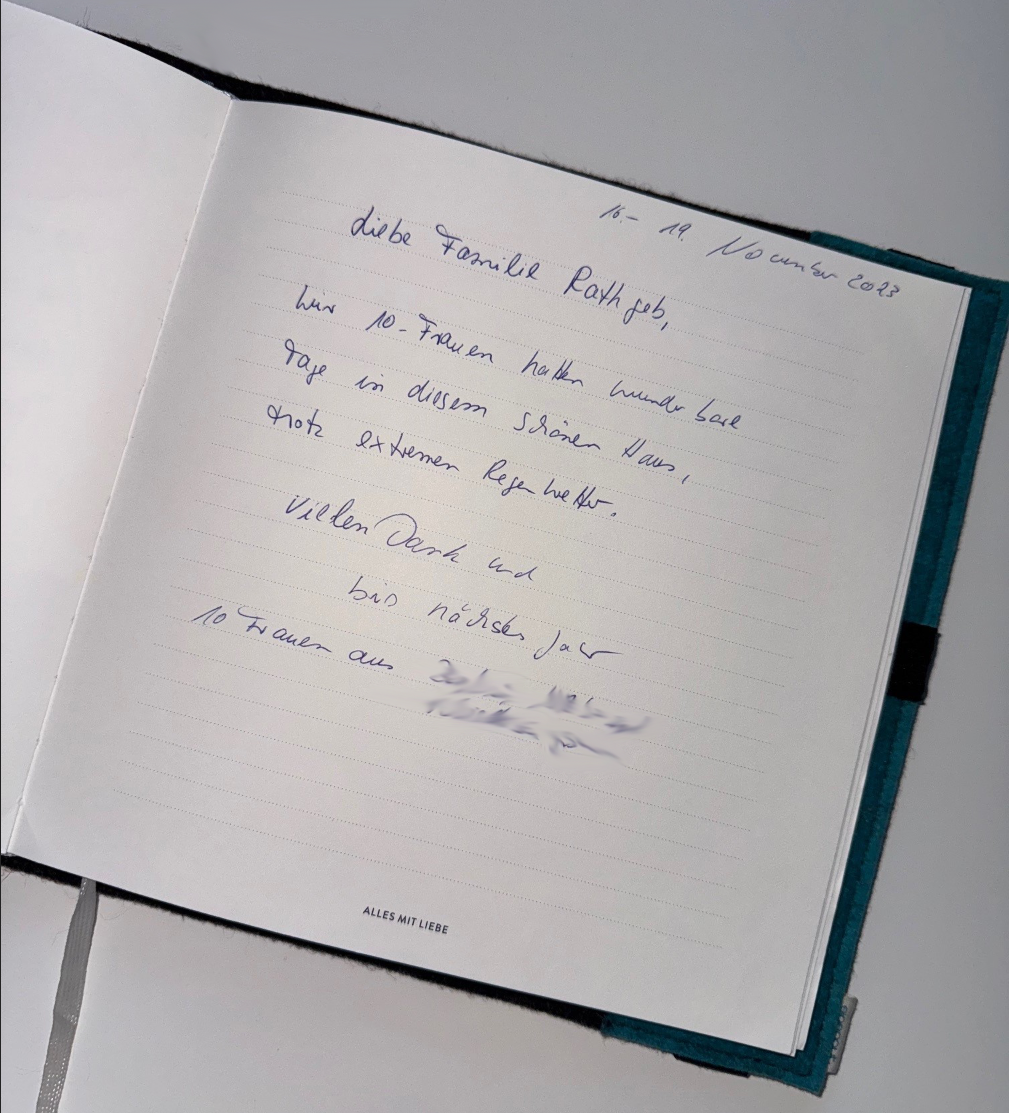 16.- 19. November 2023
Liebe Familie Rathgeb,
Wir 10-Frauen hatten wunderbare
Tage in diesem schönen Haus,
trotz extremen Regenwetter.
Vielen Dank und
bis nächstes Jahr
10 Frauen aus
ALLES MIT LIEBE